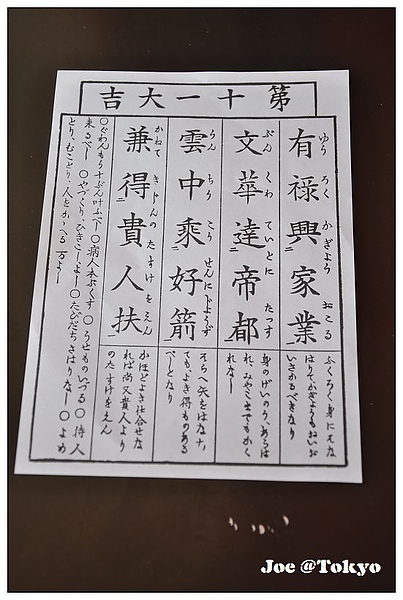 第十一大吉
有祿興家業
ゆう ろく かぎよう おこる
ふくろく身にそな
はりてかぎようもおいお
いさかゆべきなり
文華達帝都
ぶん くわ ていとに たつす
身のげいのう、あらは
れ みやこまでもかく
れなし
雲中乘好箭
うん ちう
そらへ矢をはな
ても、よき得ものある
べしとなり
兼得貴人扶
かねて きじんの たすけをえん
かほどよき仕合せな
れば尚又貴人より
のたすけをえん
〇ぐわんもう十ぶん叶ふべし〇病人本ぶくす〇うせものいづる〇待人
来るべし〇やづくり、ひきこしよし〇たびだちさはりなし〇よめ
とり、むことり、人をかかへる 万よし
Joe @Tokyo